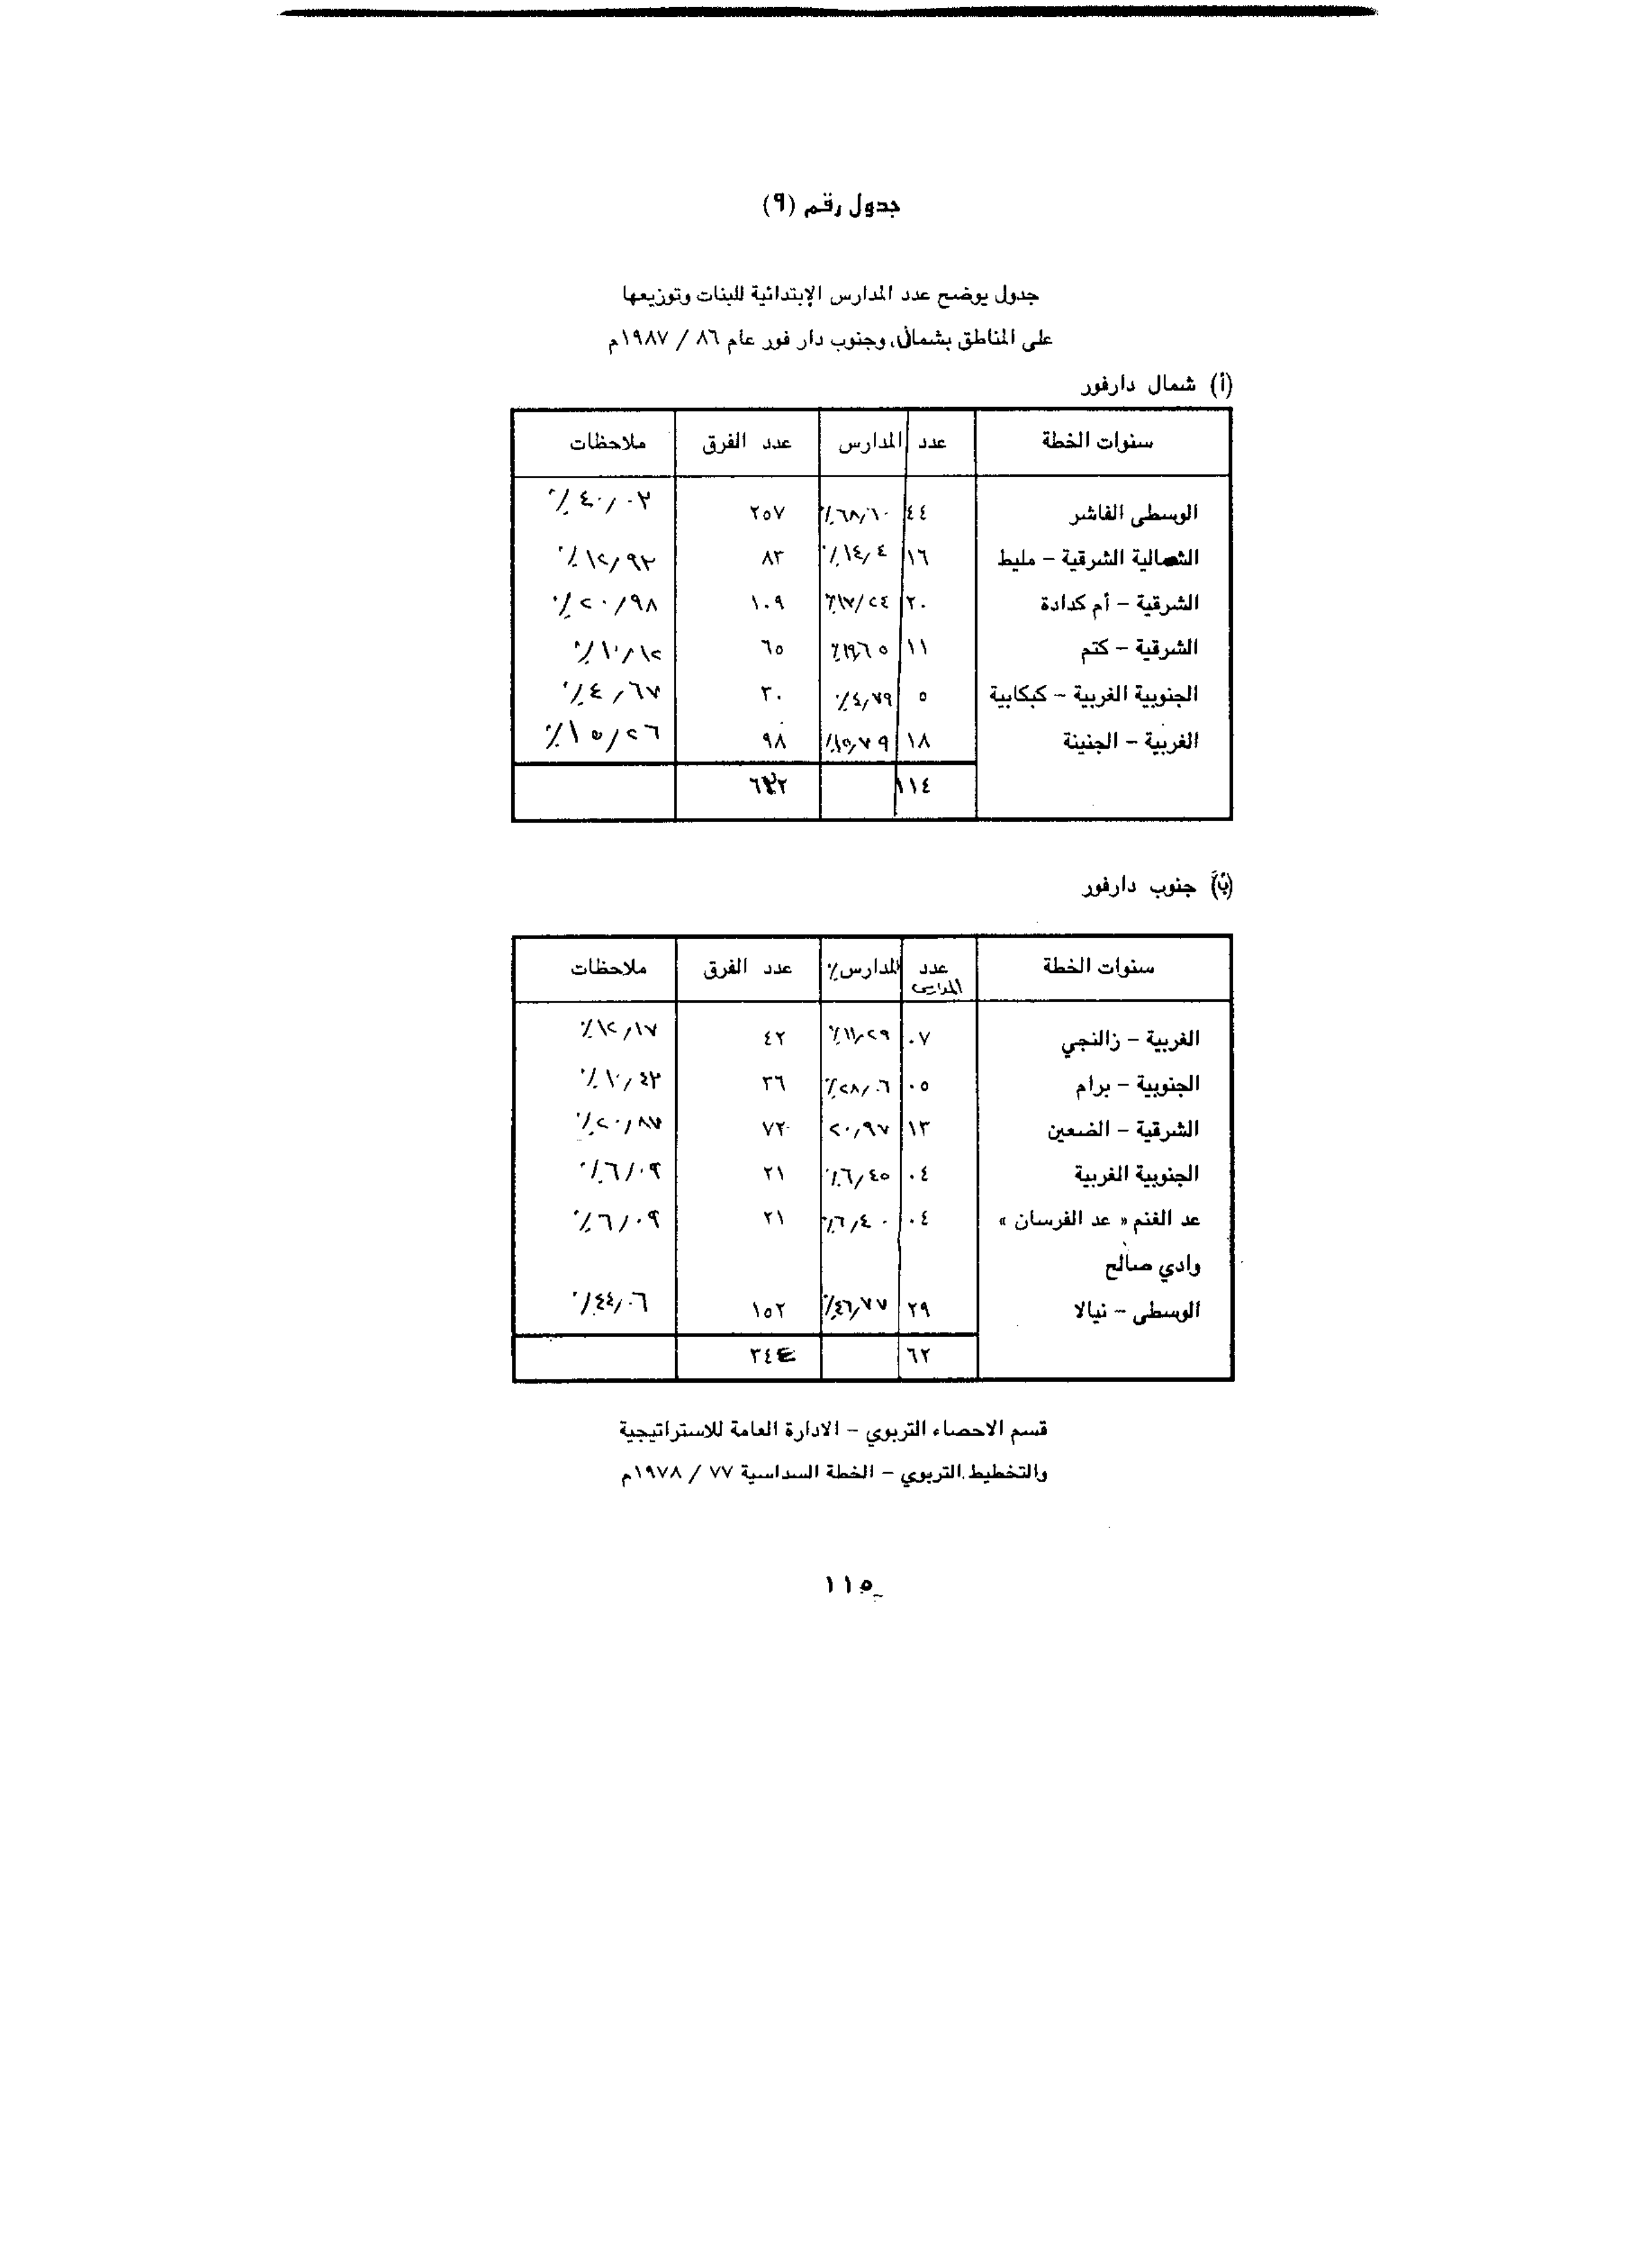 جدول رقم (٩)
جدول يوضح عدد المدارس الإبتدائية للبنات وتوزيعها
على المناطق بشمال وجنوب دار فور عام ٨٦ / ١٩٨٧م
(أ) شمال دارفور
سنوات الخطة عدد المدارس عدد الفرق ملاحظات
الوسطى الفاشر ٤٤ ٦٨/٦٠٪ ٢٥٧ ٤٠/٠٢٪
الشمالية الشرقية – مليط ١٦ ١٤/٤٪ ٨٣ ١٢/٩٢٪
الشرقية – أم كدادة ٢٠ ١٧/٢٤٪ ١٠٩ ٢٠/٩٨٪
الشرقية – كتم ١١ ٦٥ ١٠/١٢٪
الجنوبية الغربية – كبكابية ٥ ٤,٧٩٪ ٣٠ ٤,٦٧٪
الغربية – الجنينة ١٨ ١٥,٧٩٪ ٩٨ ١٥/٢٦٪
١١٤
(ب) جنوب دارفور
سنوات الخطة عدد المدارس المدارس٪ عدد الفرق ملاحظات
الغربية – زالنجي ٠٧ ١١,٢٩٪ ٤٢ ١٢,١٧٪
الجنوبية – برام ٠٥ ٢٨,٠٦٪ ٣٦ ١٠,٤٣٪
الشرقية – الضعين ١٣ ٢٠,٩٧ ٧٢ ٢٠,٨٧٪
الجنوبية الغربية ٠٤ ٦,٤٥٪ ٢١ ٦/٠٩٪
عد الغنم « عد الفرسان » ٠٤ ٦,٤٠٪ ٢١ ٦/٠٩٪
وادي صالح
الوسطى – نيالا ٢٩ ٤٦,٧٧٪ ١٥٢ ٤٤,٠٦٪
٦٢
قسم الاحصاء التربوي – الادارة العامة للاستراتيجية
والتخطيط التربوي – الخطة السداسية ٧٧ / ١٩٧٨م
١١٥